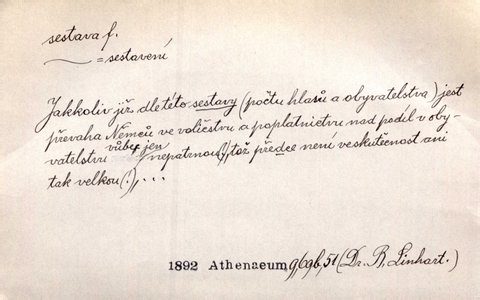 sestava f.
= sestavení
Jakkoliv již dle této sestavy (počtu hlasů a obyvatelstva) jest
převaha Němců ve voličstvu a poplatnictvu nad podíl v oby-
vatelstvu vůbec jen nepatrnou(!), tož předce není ve skutečnost ani
tak velkou(!), ...
1892 Athenaeum, 51 (Dr. R. Linhart.)